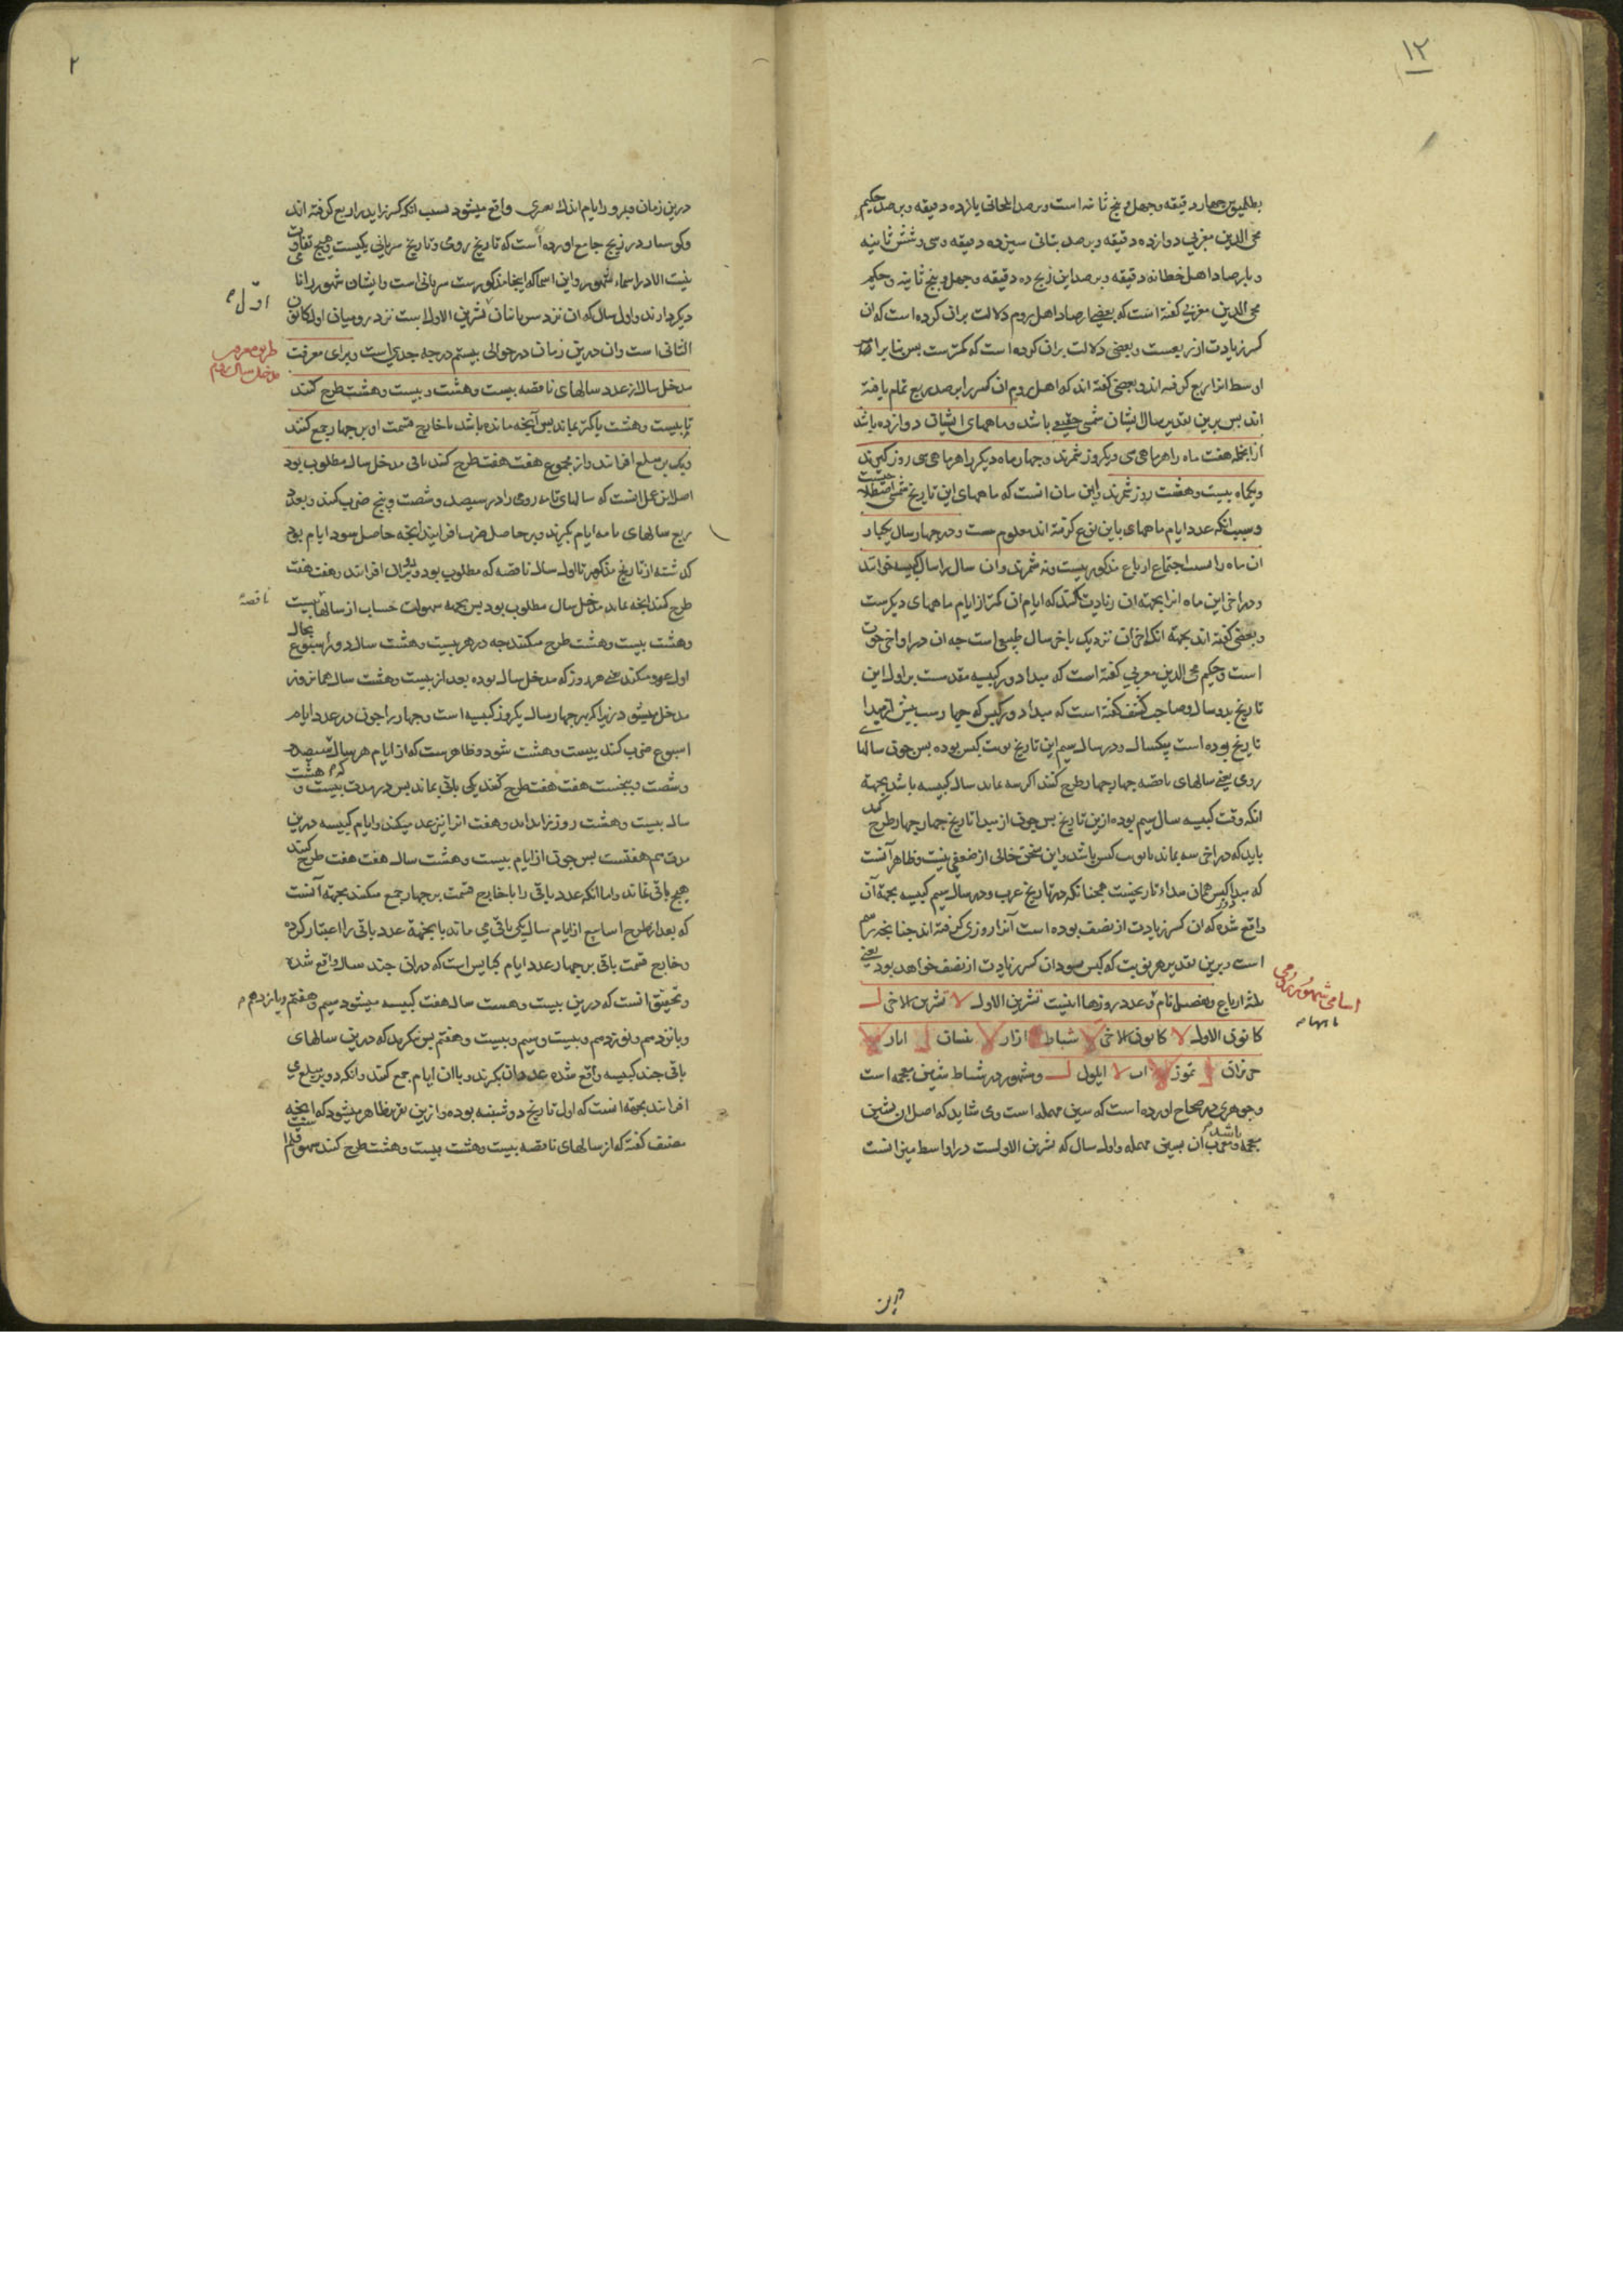 ۱۲
بطلمیوس چهار دقیقه و چهل و پنج ثانیه است و برصد ایلخانی یازده دقیقه و برصد حکیم
محی الدین مغربی دوازده دقیقه و برصد بتانی سیزده دقیقه و سی و شش ثانیه
و بارصاد اهل خطا نه دقیقه و برصد این زیج ده دقیقه و چهل و پنج ثانیه و حکیم
محی الدین مغربی کفته است که بعضی ارصاد اهل روم دلالت بران کرده است که ان
کسر زیادت از ربعست و بعضی دلالت بران کرده است که کمترست پس بنابر
اوسط انرا ربع کرفته اند و بعضی کفته اند که اهل روم ان کسر را برصد ربع تمام یافته
اند پس برین تقدیر سال ایشان شمسی حقیقی باشد و ماههای ایشان دوازده باشد
ازانجمله هفت ماه را هر ماهی سی و یکروز شمرند و چهار ماه دیکر را هر ماهی سی روز کیرند
و یکماه بیست و هشت روز شمرند و این سان انست که ماههای این تاریخ شمسی اصطلا
و سبب انکه عدد ایام ماههای باین نوع کرفته اند معلوم نیست و در چهار سال یکبار
ان ماه را بسبب اجتماع ارباع مذکور بیست و نه شمرند و ان سال را سال کبیسه خوانند
و در اخر این ماه انرا بجهة ان زیادت کنند که ایام ان کمتر از ایام ماههای دیکرست
و بعضی کفته اند بجهة انکه اخر ان نزدیک باخر سال طبیعی است چه ان در اواخر حوت
است و حکیم محی الدین مغربی کفته است که مبداء دور کبیسه مقدمست بر اول این
تاریخ بدو سال و صاحب کشف کفته است که مبداء دور کبس که چهارست پیش از مبداء
تاریخ بوده است بیکسال و در سال سیم این تاریخ نوبت کبس بوده پس چون سالها
رومی یعنی سالهای ناقصه چهار چهار طرح کنند اکر سه بماند سال کبیسه باشد بجهة
انکه وقت کبیسه سال سیم بوده ازین تاریخ پس چون از مبداء تاریخ چهار چهار طرح کنند
باید که در اخر سه بماند تا نوبت کبس باشد و این سخن خالی از ضعفی نیست و ظاهر آنست
که مبداء دور کبس همان مبداء تاریخست همچنانکه در تاریخ عرب و در سال سیم کبیسه بجهة آن
واقع شده که ان کسر زیادت از نصف بوده است آنرا روزی کرفته اند چنانچه رسم
است و برین تقدیر هر نوبت که کبس میبود ان کسر زیادت از نصف خواهد بود یعنی
ثلثة ارباع و تفصیل نام و عدد روزها اینست تشرین الاول لا تشرین الاخر ل
کانون الاول لا کانون الاخر لا شباط ازار لا نیسان ل ایار لا
حزیران ل تموز لا اب لا ایلول ل و مشهور در شباط شین معجمه است
و جوهری در صحاح اورده است که سین مهمله است و می شاید که اصل ان بشین
معجمه باشد و معرب ان بسین مهمله و اول سال که تشرین الاولست در اواسط میزانست
اسامی شهور رومی
با ایامها
درین
۲
درین زمان و مرور ایام اندک تغیری واقع میشود بسبب انکه کسر زاید را ربع کرفته اند
و کوشیار در زیج جامع اورده است که تاریخ رومی و تاریخ سریانی یکیست و هیچ تفاوت
نیست الا در اسماء شهور و این اسما که اینجا مذکورست سریانی است و ایشان شهور را نا
دیکر دارند و اول سال که ان نزد سریانیان تشرین الاول است نزد رومیان اول کانون
الثانی است و ان درین زمان در حوالی بیستم درجه جدی است و برای معرفت
مدخل سال از عدد سالهای ناقصه بیست و هشت و بیست و هشت طرح کنند
تا بیست و هشت یا کمتر بماند پس آنچه مانده باشد با خارج قسمت او بر چهار جمع کنند
و یک بر مبلغ افزایند و از مجموع هفت هفت طرح کنند باقی مدخل سال مطلوب بود
اصل این عمل انست که سالهای تامه رومی را در سیصد و شصت و پنج ضرب کنند و بعدد
ربع سالهای تامه ایام بکیرند و بر حاصل ضرب افزایند انچه حاصل شود ایام بود
کذشته از تاریخ مذکور تا اول سال ناقصه که مطلوب بود و دو بران افزایند و هفت هفت
طرح کنند انچه بماند مدخل سال مطلوب بود پس بجهة سهولت حساب از سالها بیست
وهشت بیست و هشت طرح میکنند چه در هر بیست و هشت سال دور اسبوع بحال
اول عود میکند یعنی هر روز که مدخل سال بوده بعد از بیست و هشت سال همان روز
مدخل میشود زیرا که بهر چهار سال یکروز کبیسه است و چهار را چون در عدد ایام
اسبوع ضرب کنند بیست و هشت شود و ظاهرست که از ایام هر سال که سیصد
و شصت و پنجست هفت هفت طرح کنند یکی باقی بماند پس در مدت بیست و هشت
سال بیست و هشت روز زاید اید و هفت انرا نیز عد میکند و ایام کبیسه درین
مدت هم هفتست پس چون از ایام بیست و هشت سال هفت هفت طرح کنند
هیچ باقی نماند و اما انکه عدد باقی را با خارج قسمت بر چهار جمع میکنند بجهة آنست
که بعد از طرح اسابیع از ایام سال یکی باقی می ماند باینجهة عدد باقی را اعتبار کرده
و خارج قسمت باقی بر چهار عدد ایام کبایس است که دران چند سال واقع شده
و تحقیق انست که درین بیست و هشت سال هفت کبیسه میشود سیم و هفتم و یازدهم
و پانزدهم و نوزدهم و بیست و سیم و بیست و هفتم پس نکرند که درین سالهای
باقی چند کبیسه واقع شده عدد ان بکیرند و باان ایام جمع کنند و انکه دو بر مبلغ می
افزایند بجهة انست که اول تاریخ دوشنبه بوده و ازین تقریر ظاهر میشود که انچه
مصنف کفته که از سالهای ناقصه بیست و هشت بیست و هشت طرح کنند سهو قلم
اول
طریق معرفت
مدخل سال رومی
ناقصه